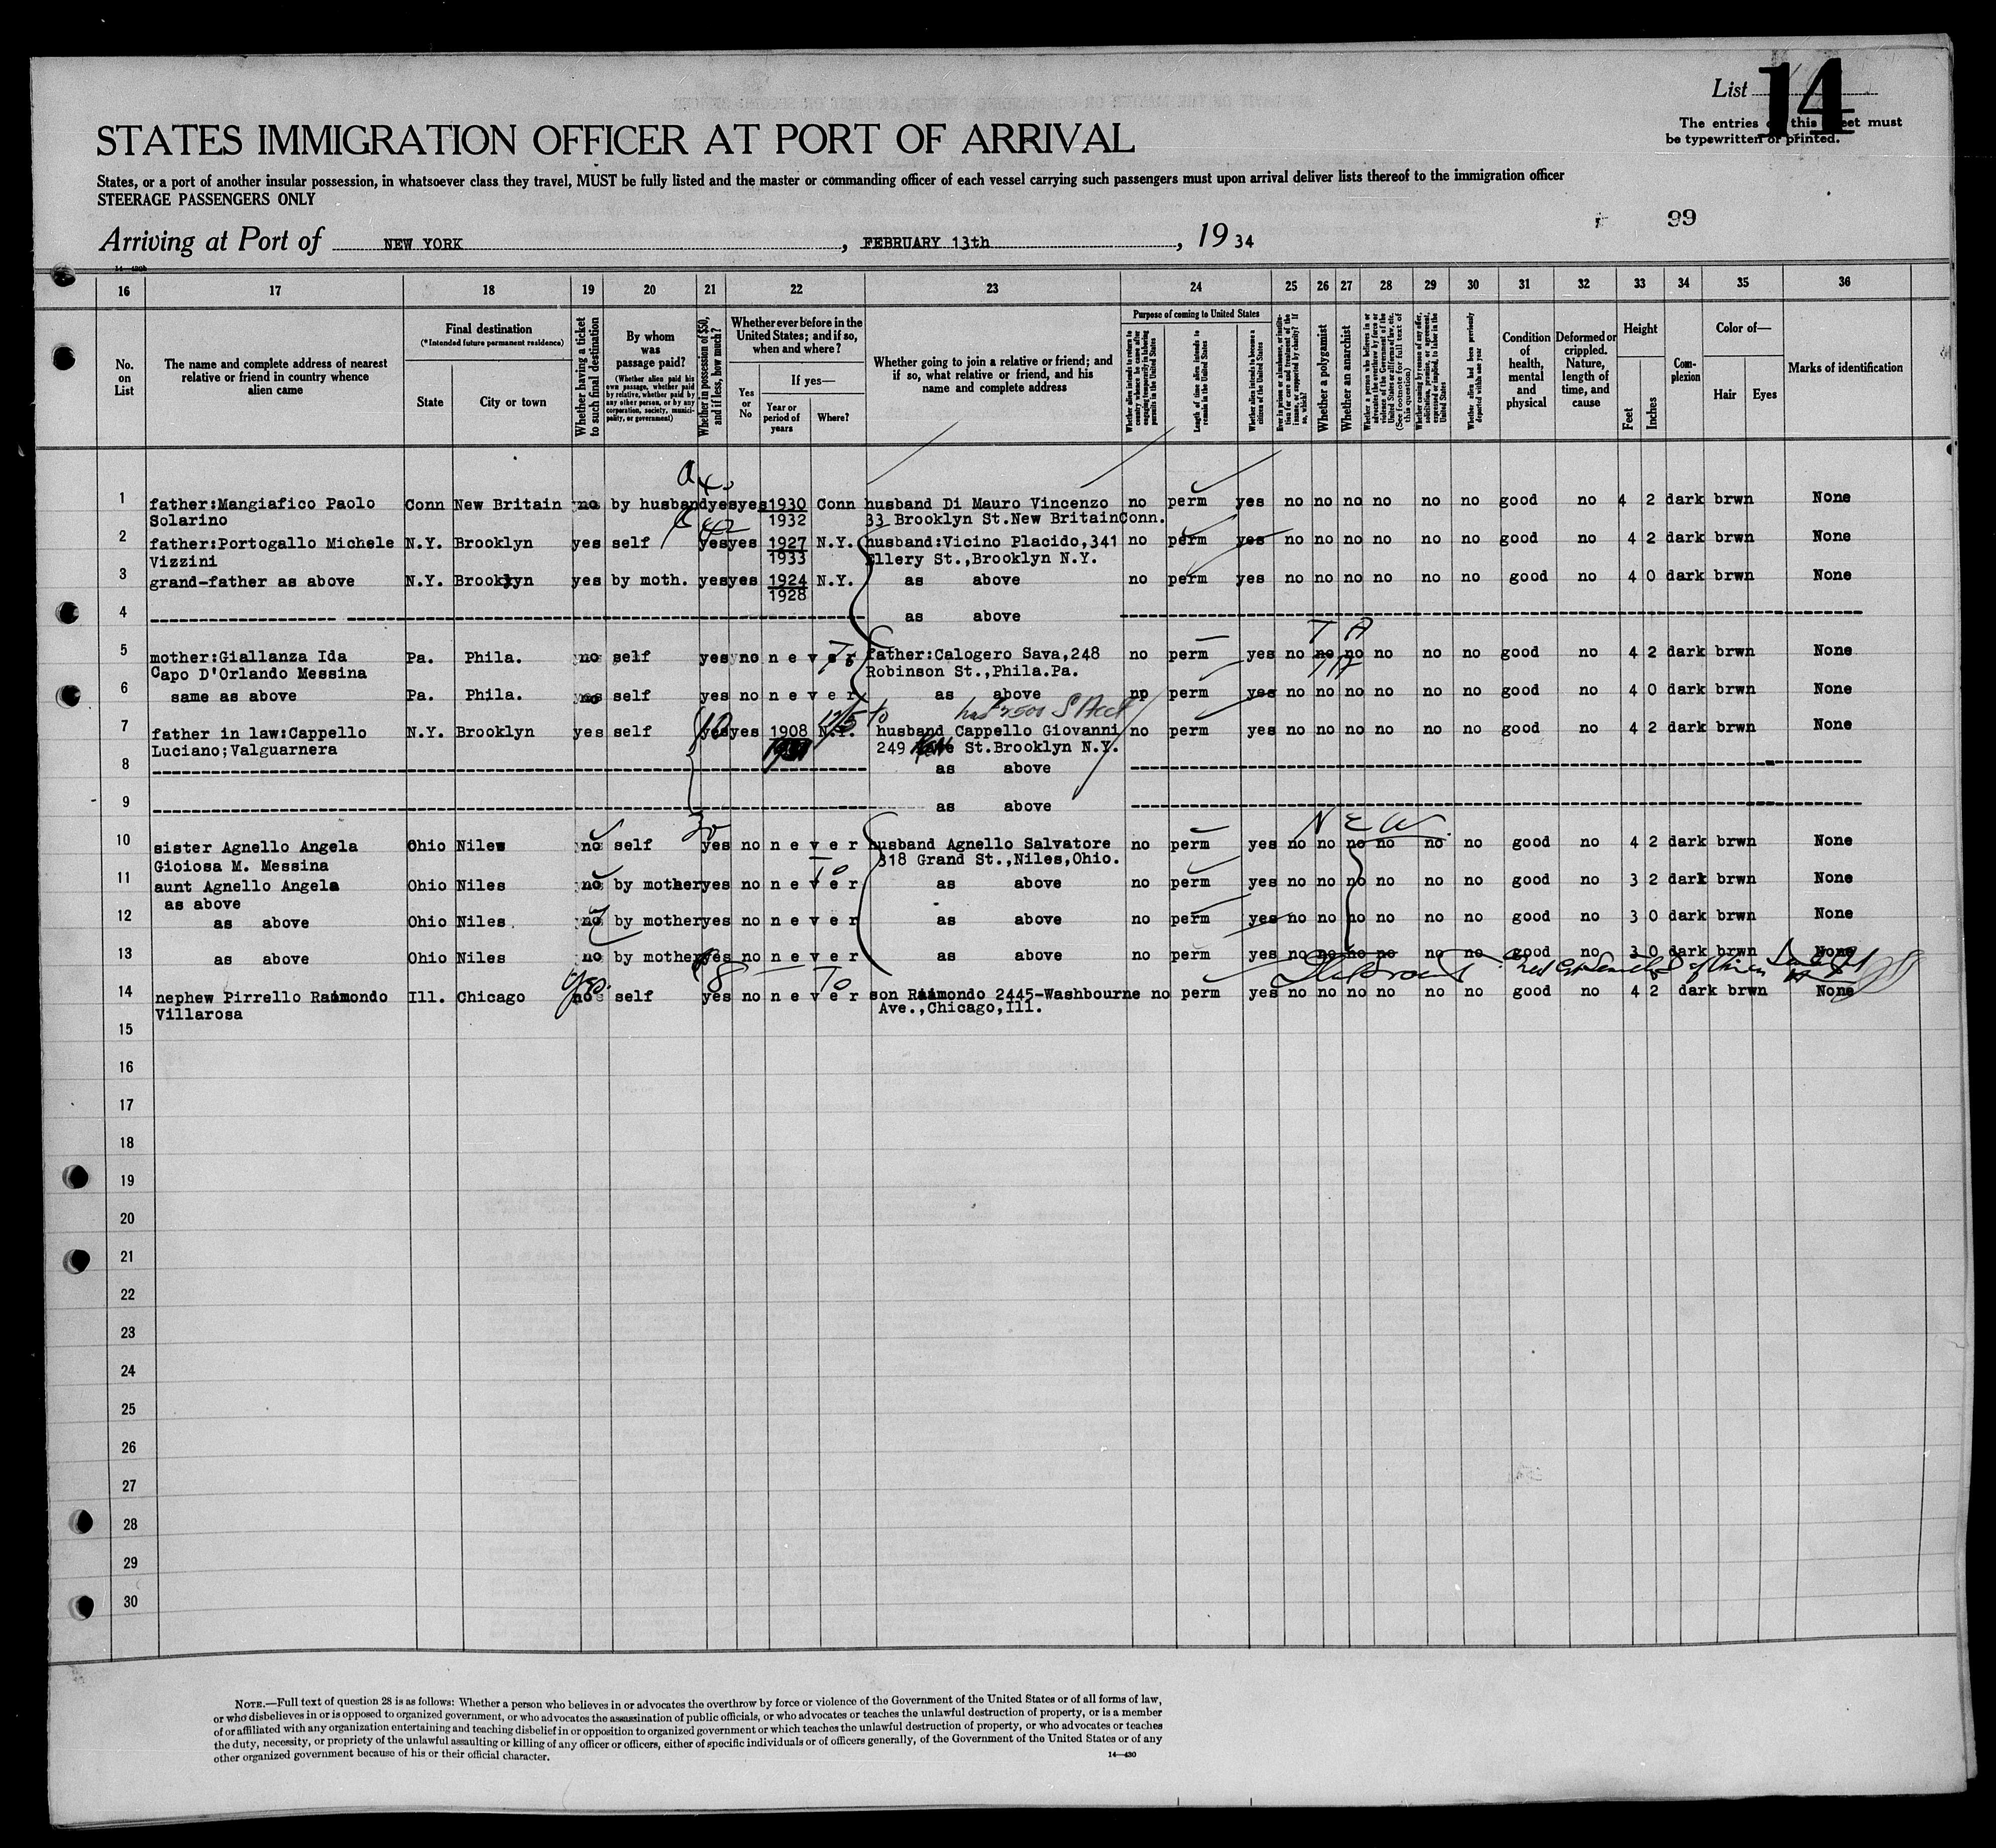 List 14
The entries on this sheet must
be typewritten or printed.
STATES IMMIGRATION OFFICER AT PORT OF ARRIVAL
States, or a port of another insular possession, in whatsoever class they travel, MUST be fully listed and the master or commanding officer of each vessel carrying such passengers must upon arrival deliver lists thereof to the immigration officer
STEERAGE PASSENGERS ONLY
99
Arriving at Port of NEW YORK, FEBRUARY 13th, 19 34
16 17 18 19 20 21 22 23 24 25 26 27 28 29 30 31 32 33 34 35 36
No. on List
The name and complete address of nearest relative or friend in country whence alien came
Final destination
(*Intended future permanent residence)
State
City or town
Whether having a ticket to such final destination
By whom was passage paid?
(Whether alien paid his own passage, whether paid by relative, whether paid by any other person, or by any corporation, society, municipality, or government)
Whether in possession of $50, and if less, how much?
Whether ever before in the United States; and if so, when and where?
Yes or No
If yes—
Year or period of years
Where?
Whether going to join a relative or friend; and if so, what relative or friend, and his name and complete address
Purpose of coming to United States
Length of time alien intends to remain in the United States
Whether alien intends to become a citizen of the United States
Whether a polygamist
Whether an anarchist
Whether alien had been previously deported within one year
Condition of health, mental and physical
Deformed or crippled. Nature, length of time, and cause
Height
Feet
Inches
Complexion
Color of—
Hair
Eyes
Marks of identification
1 father:Mangiafico Paolo Conn New Britain no by husband yes yes 1930 Conn husband Di Mauro Vincenzo no perm yes no no no no no no good no 4 2 dark brwn None
Solarino 1932 33 Brooklyn St.New Britain Conn.
2 father:Portogallo Michele N.Y. Brooklyn yes self yes yes 1927 N.Y. husband:Vicino Placido,341 no perm yes no no no no no no good no 4 2 dark brwn None
Vizzini 1933 Ellery St.,Brooklyn N.Y.
3 grand-father as above N.Y. Brooklyn yes by moth. yes yes 1924 N.Y. as above no perm yes no no no no no no good no 4 0 dark brwn None
1928
4 as above
5 mother:Giallanza Ida Pa. Phila. no self yes no never father:Calogero Sava,248 no perm yes no no no no no no good no 4 2 dark brwn None
Capo D'Orlando Messina Robinson St.,Phila.Pa.
6 same as above Pa. Phila. self yes no never as above no perm yes no no no no no no good no 4 0 dark brwn None
7 father in law:Cappello N.Y. Brooklyn yes self yes yes 1908 N.Y. husband Cappello Giovanni no perm yes no no no no no no good no 4 2 dark brwn None
Luciano;Valguarnera 249 St.Brooklyn N.Y.
8 as above
9 as above
10 sister Agnello Angela Ohio Niles no self yes no never husband Agnello Salvatore no perm yes no no no no no no good no 4 2 dark brwn None
Gioiosa M. Messina 318 Grand St.,Niles,Ohio.
11 aunt Agnello Angela Ohio Niles no by mother yes no never as above no perm yes no no no no no no good no 3 2 dark brwn None
as above
12 as above Ohio Niles no by mother yes no never as above no perm yes no no no no no no good no 3 0 dark brwn None
13 as above Ohio Niles no by mother yes no never as above no perm yes no no no no no no good no 3 0 dark brwn None
14 nephew Pirrello Raimondo Ill. Chicago self yes no never son Raimondo 2445-Washbourne no perm yes no no no no no no good no 4 2 dark brwn None
Villarosa Ave.,Chicago,Ill.
15
16
17
18
19
20
21
22
23
24
25
26
27
28
29
30
NOTE.—Full text of question 28 is as follows: Whether a person who believes in or advocates the overthrow by force or violence of the Government of the United States or of all forms of law,
or who disbelieves in or is opposed to organized government, or who advocates the assassination of public officials, or who advocates or teaches the unlawful destruction of property, or is a member
of or affiliated with any organization entertaining and teaching disbelief in or opposition to organized government or which teaches the unlawful destruction of property, or who advocates or teaches
the duty, necessity, or propriety of the unlawful assaulting or killing of any officer or officers, either of specific individuals or of officers generally, of the Government of the United States or of any
other organized government because of his or their official character.
14—430